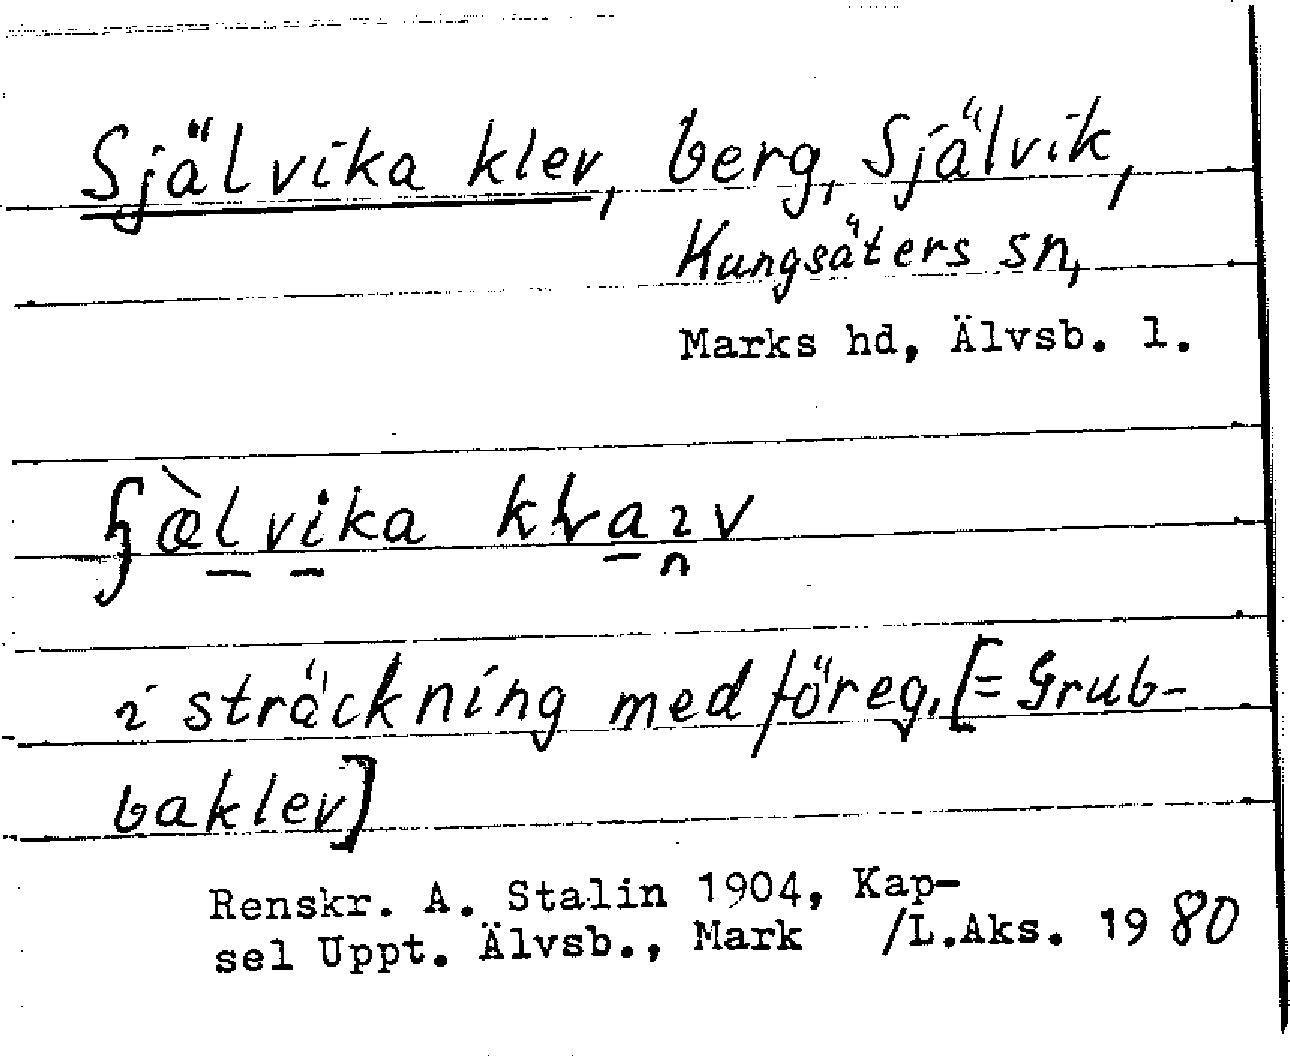 Självika klev, berg, Självik,
Kungsäters sn,
Marks hd, Älvsb. l.
i sträckning med föreg. [= Grub-
baklev]
Renskr. A. Stalin 1904, Kap-
sel Uppt. Älvsb., Mark /L.Aks. 1980